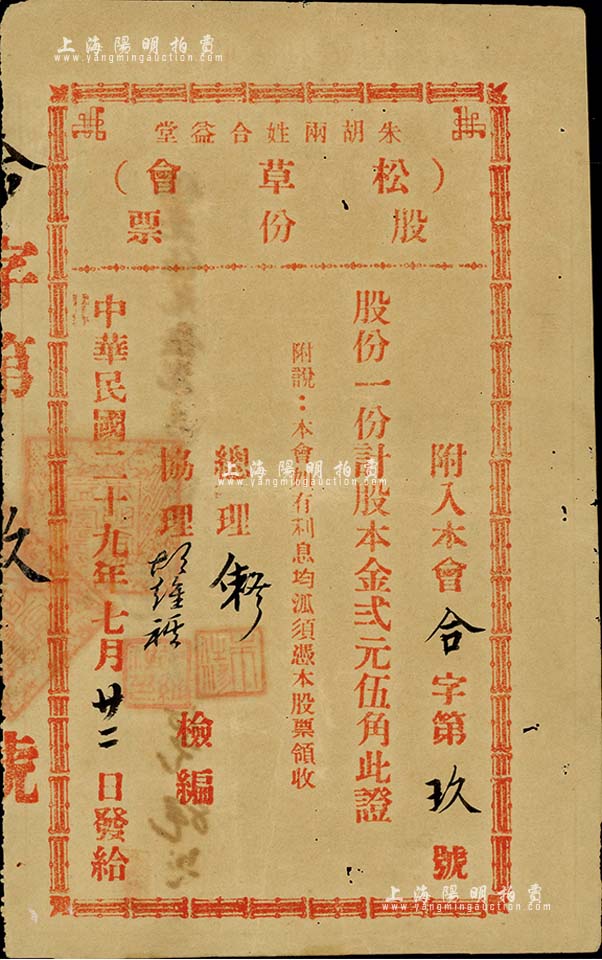 上海陽明拍賣
www.yangmingauction.com
朱胡兩姓合益堂
（松草會）
股份票
附入本會合字第玖號
股份一份計股本金弍元伍角此證
附說：本會如有利息均派須憑本股票領收
總理
協理 胡維祺
檢編
中華民國二十九年七月廿二日發給
合字第玖號
上海陽明拍賣
www.yangmingauction.com
上海陽明拍賣
www.yangmingauction.com